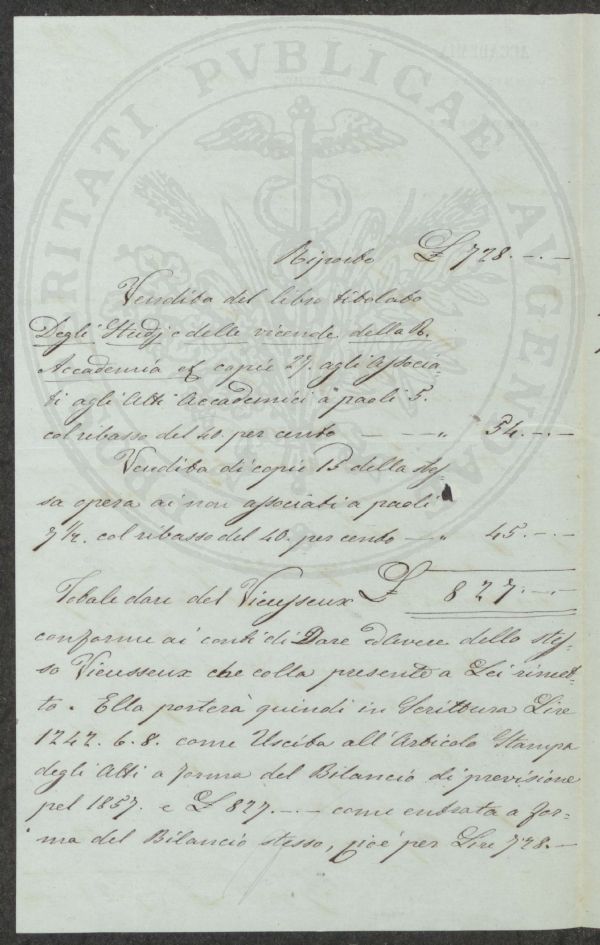 PROSPERITATI PVBLICAE AVGENDAE
Riporto £ 728.-.-
Vendita del libro titolato
Degli Studj e delle vicende della R.
Accademia
copie 27. agli Associa
ti agli Atti Accademici a paoli 5.
col ribasso del 40. per cento — — „ 54.-.-
Vendita di copie 15 della stes-
sa opera ai non associati a paoli
7½. col ribasso del 40. per cento — „ 45.-.-
Totale dare del Vieusseux £ 827.-.-
conforme ai conti di Dare ed Avere dello stes-
so Vieusseux che colla presente a Lei rimet-
to. Ella porterà quindi in Scrittura Lire
1242. 6. 8. come Uscita all'Articolo Stampa
degli Atti a forma del Bilancio di previsione
pel 1857. e £ 827.-.- come entrata a for-
ma del Bilancio stesso, cioè per Lire 728.-